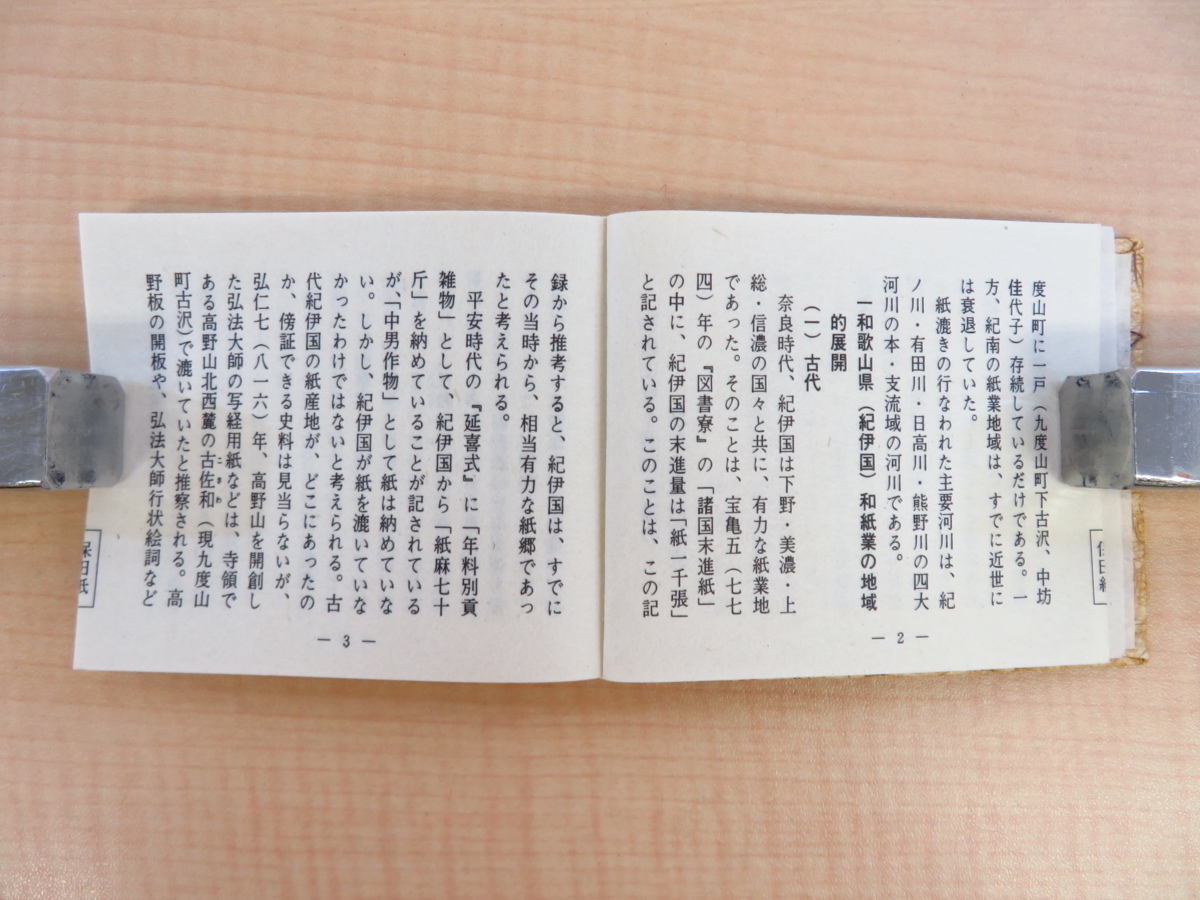 度山町に一戸（九度山町下古沢、中坊
佳代子）存続しているだけである。一
方、紀南の紙業地域は、すでに近世に
は衰退していた。
紙漉きの行なわれた主要河川は、紀
ノ川・有田川・日高川・熊野川の四大
河川の本・支流域の河川である。
一和歌山県（紀伊国）和紙業の地域
的展開
（一）古代
奈良時代、紀伊国は下野・美濃・上
総・信濃の国々と共に、有力な紙業地
であった。そのことは、宝亀五（七七
四）年の『図書寮』の「諸国未進紙」
の中に、紀伊国の未進量は「紙一千張」
と記されている。このことは、この記
— 2 —
録から推考すると、紀伊国は、すでに
その当時から、相当有力な紙郷であっ
たと考えられる。
平安時代の『延喜式』に「年料別貢
雑物」として、紀伊国から「紙麻七十
斤」を納めていることが記されている
が、「中男作物」として紙は納めていな
い。しかし、紀伊国が紙を漉いていな
かったわけではないと考えられる。古
代紀伊国の紙産地が、どこにあったの
か、傍証できる史料は見当らないが、
弘仁七（八一六）年、高野山を開創し
た弘法大師の写経用紙などは、寺領で
ある高野山北西麓の古佐和（現九度山
こさわ
町古沢）で漉いていたと推察される。高
野板の開板や、弘法大師行状絵詞など
— 3 —
保田紙